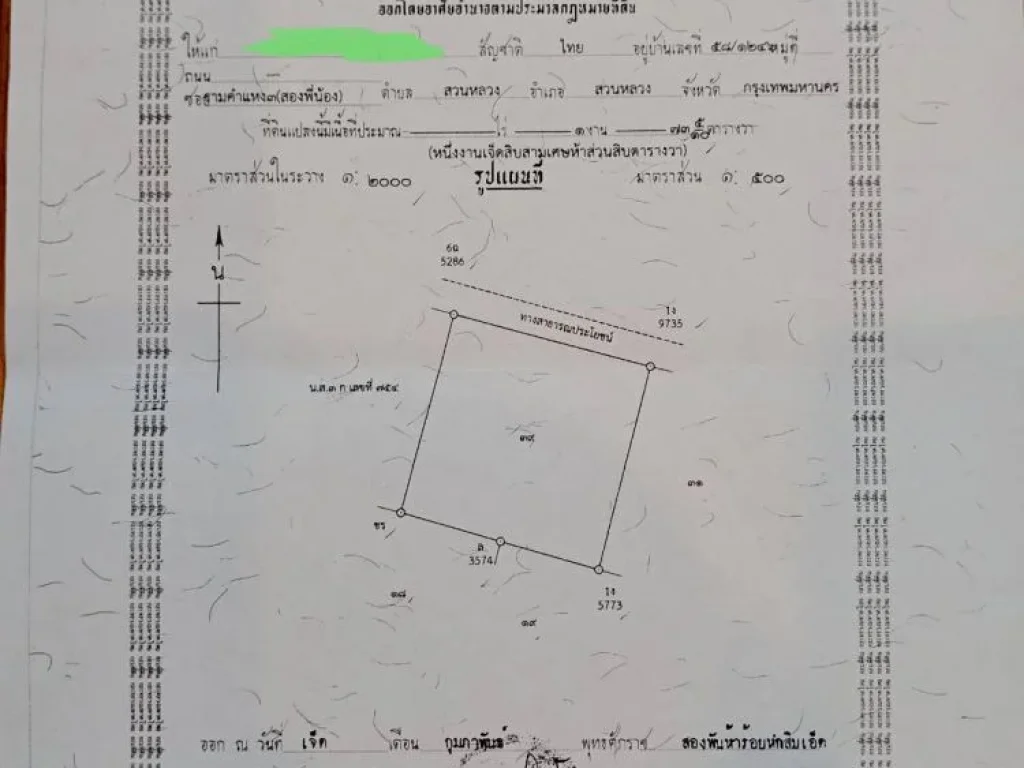 ออกโดยอาศัยอำนาจตามประมวลกฎหมายที่ดิน
ให้แก่ สัญชาติ ไทย อยู่บ้านเลขที่ ๕๘/๑๒๔ หมู่ที่
ถนน —
ซอยรามคำแหง๓(สองพี่น้อง) ตำบล สวนหลวง อำเภอ สวนหลวง จังหวัด กรุงเทพมหานคร
ที่ดินแปลงนี้มีเนื้อที่ประมาณ ไร่ ๑ งาน ๗๓ ๕/๑๐ ตารางวา
(หนึ่งงานเจ็ดสิบสามเศษห้าส่วนสิบตารางวา)
มาตราส่วนในระวาง ๑: ๒๐๐๐ รูปแผนที่ มาตราส่วน ๑: ๕๐๐
น
6ฉ
5286
1ง
9735
ทางสาธารณประโยชน์
น.ส.๓ ก เลขที่ ๗๕๔
๓๙
๓๑
ชร
ล
3574
1ง
5773
๑๘
๑๙
ออก ณ วันที่ เจ็ด เดือน กุมภาพันธ์ พุทธศักราช สองพันห้าร้อยหกสิบเอ็ด